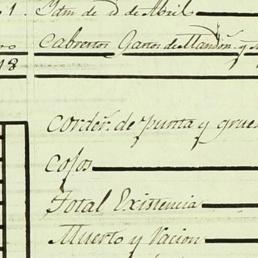 1. Idm de id de Abril
ro Cabreros Gastos de Mandon. y
18
Corder.s de punta y grue
Cojos
Total Existencia
Muerto y Vacion